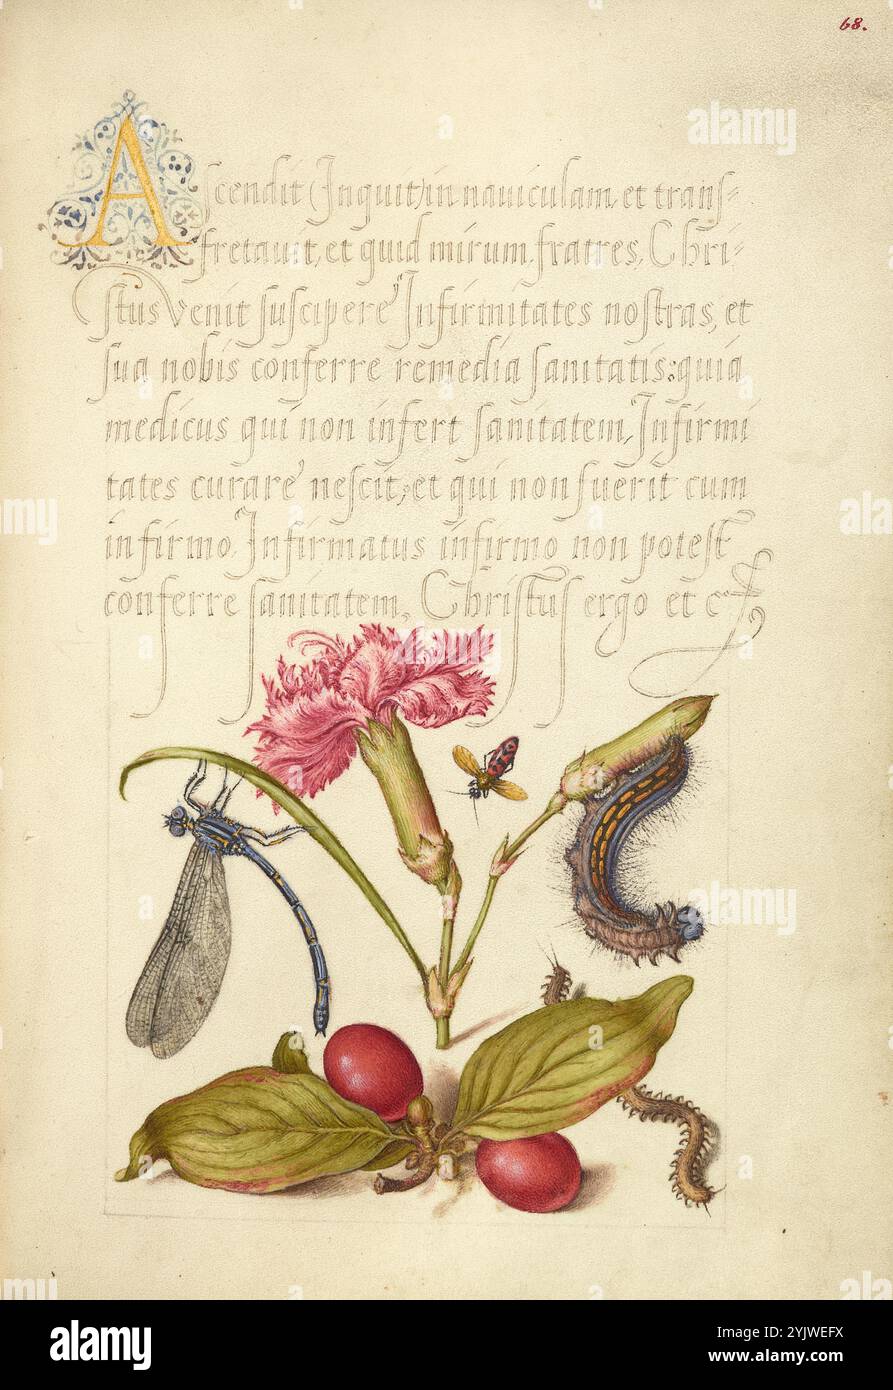 68.
Ascendit (Inquit) in nauiculam, et transſ=
fretauit, et quid mirum fratres, Chri=
ſtus venit ſuſcipere Infirmitates noſtras, et
ſua nobis conferre remedia ſanitatis: quia
medicus qui non infert ſanitatem, Infirmi
tates curare neſcit, et qui non fuerit cum
infirmo. Infirmatus infirmo non poteſt
conferre ſanitatem, Chriſtuſ ergo et c.
alamy
Image ID: 2YJWEFX
www.alamy.com